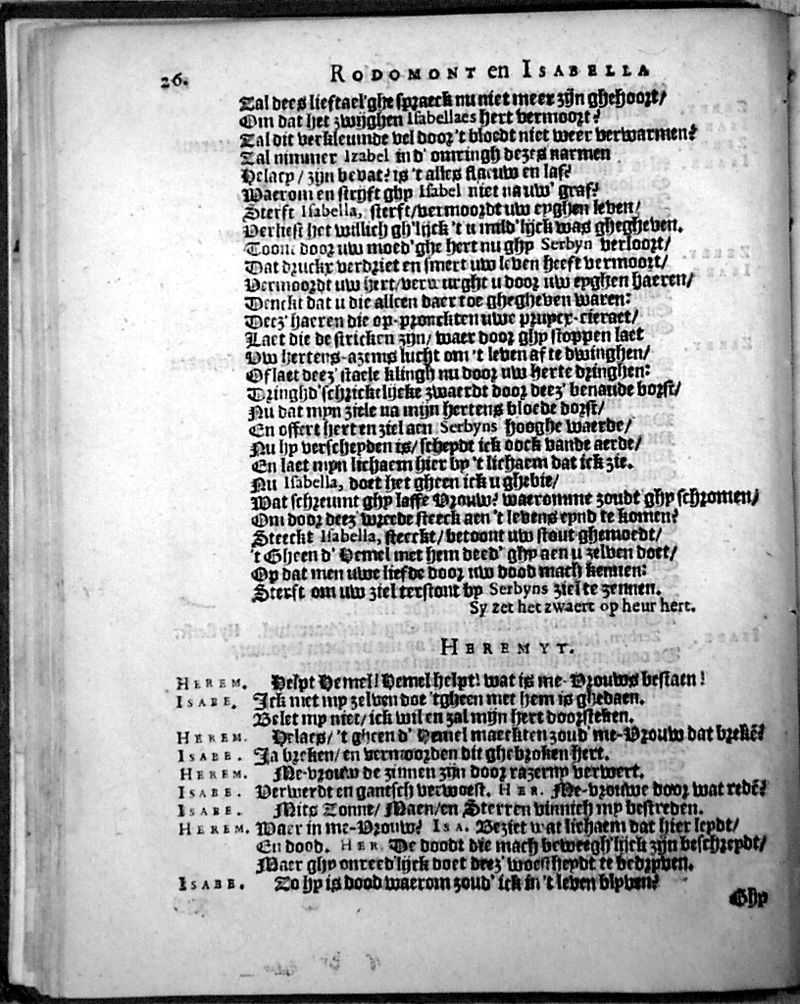 26. RODOMONT en ISABELLA
Zal dees lieftael'ghe spraeck nu niet meer zijn ghehoort/
Om dat het zwijghen Isabellaes hert vermoort?
Zal dit verkleumde vel door 't bloedt niet weer verwarmen?
Zal nimmer Izabel in d' omringh dezes narmen
Helacy/ zijn bevat? is 't alles flauw en laf?
Waerom en strijft ghy Isabel niet na uw' graf?
Sterft Isabella, sterft/vermoordt uw eyghen leven/
Verliest het willich gh'lijck 't u mild'lijck was ghegheven.
Toont door uw moed'ghe hert nu ghy Serbyn verloort/
Dat druckx verdriet en smert uw leven heeft vermoort/
Vermoordt uw hert/verwurght u door uw eyghen haeren/
Denckt dat u die alleen daer toe ghegheven waren:
Deez' haeren die op-pronckten uwe pruyck-cieraet/
Laet die de stricken zijn/ waer door ghy stoppen laet
Uw hertens-azems lucht om 't leven af te dwinghen/
Of laet deez' staele klingh nu door uw herte dringhen:
Dringhd'schrickelijcke zwaerdt door deez' benaude borst/
Nu dat myn ziele na mijn hertens bloede dorst/
En offert hert en ziel aen Serbyns hooghe waerde/
Nu hy verscheyden is/ scheydt ick oock vande aerde/
En laet myn lichaem hier by 't lichaem dat ick zie.
Nu Isabella, doet het gheen ick u ghebie/
Wat schreumt ghy laffe Vrouw? waeromme zoudt ghy schromen/
Om door deez' wreede steeck aen 't levens eynd te komen?
Steeckt Isabella, steeckt/ betoont uw stout ghemoedt/
't Gheen d' Hemel met hem deed' ghy aen u zelven doet/
Op dat men uwe liefde door uw dood mach kennen:
Sterft om uw ziel terstont by Serbyns ziel te zennen.
Sy zet het zwaert op heur hert.
HEREMYT.
HEREM. Helpt Hemel! Hemel helpt! wat is me-Vrouws bestaen!
ISABE. Ick met my zelven doe 'tgheen met hem is ghedaen.
Belet my niet/ ick wil en zal mijn hert doorsteken.
HEREM. Helaes/ 't gheen d' Hemel maeckten zoud' me-Vrouw dat brekē?
ISABE. Ja breken/ en vermoorden dit ghebroken hert.
HEREM. Me-vrouw de zinnen zijn door razerny verwert.
ISABE. Verwerdt en gantsch verwoest. HER. Me-vrouwe door wat redē?
ISABE. Mits Zonne/ Maen/ en Sterren vinnich my bestreden.
HEREM. Waer in me-Vrouw? ISA. Beziet wat lichaem dat hier leydt/
En dood. HER. De doodt die mach beweegh'lijck zijn beschreydt/
Maer ghy onreed'lijck doet deez' woestheydt te bedryven.
ISABE. Zo hy is dood waerom zoud' ick in 't leven blyven?
Ghy